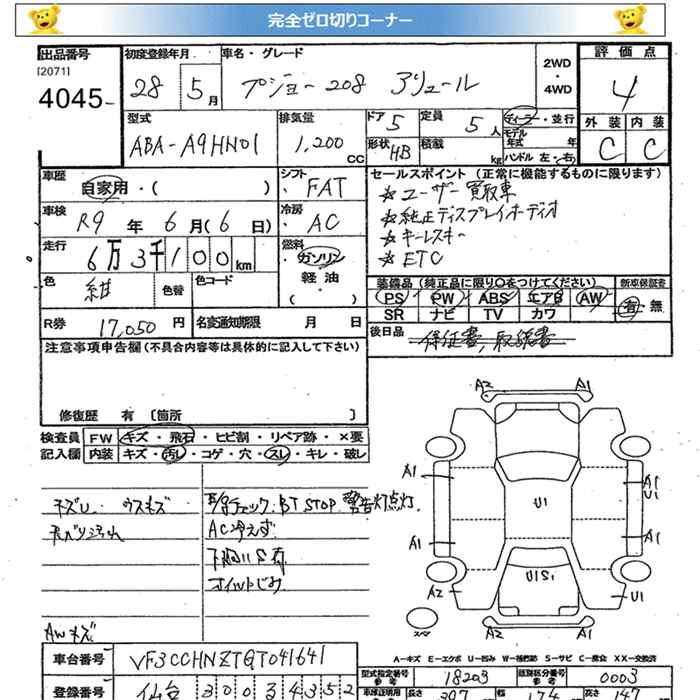 完全ゼロ切りコーナー
出品番号 初度登録年月 車名・グレード 2WD・4WD 評価点
[2071]
4045 28 5月 プジョー208 アリュール 4
型式 排気量 ドア 5 定員 5人 ディーラー・並行 外装 内装
ABA-A9HN01 1,200cc 形状 HB 積載 kg モデル年式 年 C C
ハンドル 左・右
車歴 シフト セールスポイント (正常に機能するものに限ります)
自家用・( ) FAT ☆ユーザー買取車
車検 冷房 ☆純正ディスプレイオーディオ
R9年6月(6日) AC ☆キーレスキー
走行 燃料 ☆ETC
6万3千100km ガソリン・軽油・( )
色 色替 色コード 装備品 (純正品に限り○をつけてください) 新車保証書
紺 PS PW ABS エアB AW 有・無
SR ナビ TV カワ
R券 17,050円 名変通知期限 月 日 後日品 保証書、取説書
注意事項申告欄(不具合内容等は具体的に記入して下さい)
修復歴 有 〔箇所 〕
検査員 FW キズ・飛石・ヒビ割・リペア跡・×要
記入欄 内装 キズ・汚レ・コゲ・穴・スレ・キレ・破レ
BT STOP 警告灯点灯
AC冷えず
オイルにじみ
AWキズ
A2 A1
A1 A1 U1
U1
A1 A1
U1S1
A2 U1
スペア A2 A1
A-キズ E-エクボ U-凹み W-補修跡 S-サビ C-腐食 XX-交換済
車台番号 VF3CCHNZTGT041641 型式指定番号 参考 18203 類別区分番号 参考 0003
登録番号 仙台 300 3 4352 車検証明用 参考 長さ 397 幅 174 高さ 147